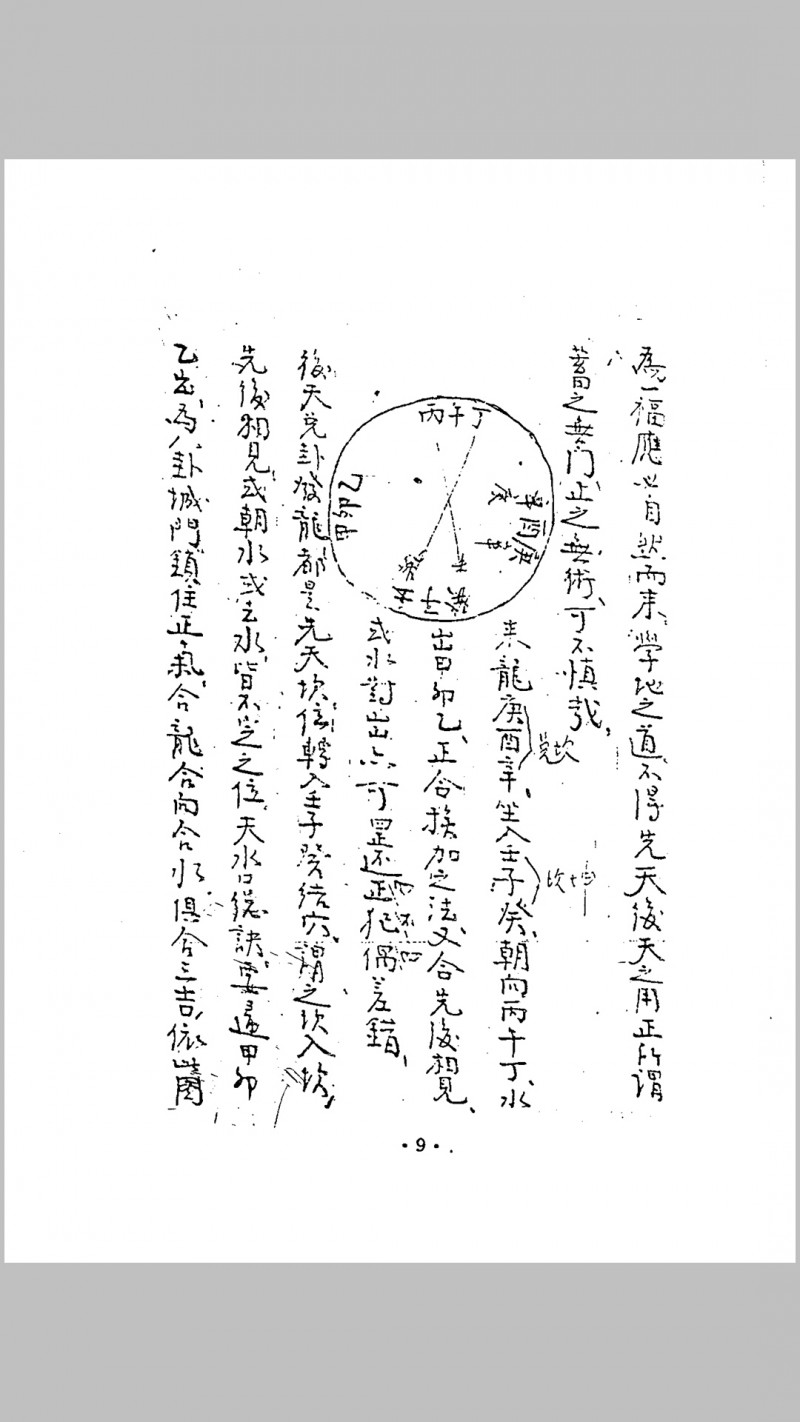 為一福應必自然而來、學地之道、不得先天後天之用正所謂
蓄之無門、止之無術、可不慎哉、
丙午丁
甲卯乙
來龍庚酉辛、坐入壬子癸、朝向丙午丁、水
兌坎
坎坤
出甲卯乙、正合挨加之法、又合先後相見、
或水對出亦可、還正犯偶差錯、
後天兌卦發龍、都是先天坎位、轉入壬子癸結穴、謂之坎入坎、
先後相見、或朝水或去水、皆不之位、天水口總訣、要過甲卯
乙出、為八卦城門、鎖住正氣、合龍合向合水、俱合三吉、依圖
·9·